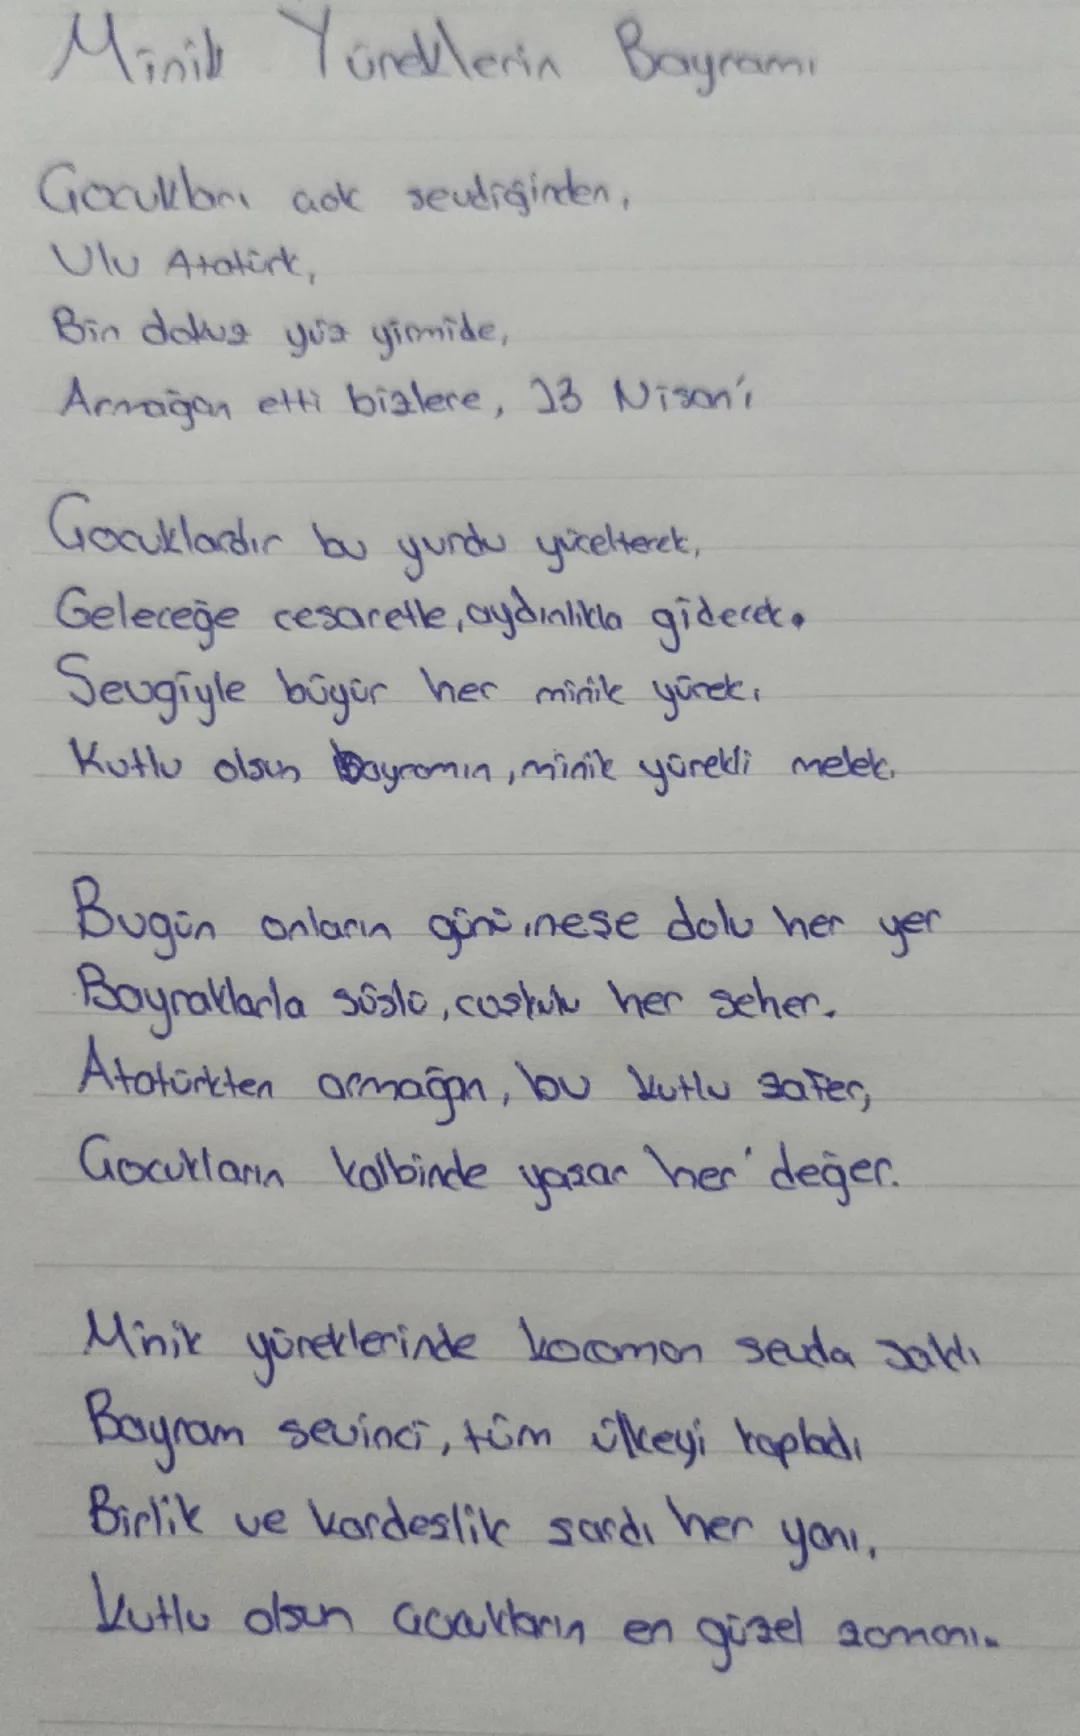 Minik Yüreklerin Bayramı
Çocukları çok sevdiğinden,
Ulu Atatürk,
Bin dokuz yüz yirmide,
Armağan etti bizlere, 23 Nisan'ı
Çocuklardır bu yurdu yücelterek,
Geleceğe cesaretle, aydınlıkla giderek.
Sevgiyle büyür her minik yürek,
Kutlu olsun bayramın, minik yürekli melek.
Bugün onların günü, neşe dolu her yer
Bayraklarla süslü, coşkulu her seher.
Atatürkten armağan, bu kutlu zafer,
Çocukların kalbinde yaşar her değer.
Minik yüreklerinde kocaman sevda saklı
Bayram sevinci, tüm ülkeyi kapladı
Birlik ve kardeşlik sardı her yanı,
Kutlu olsun çocukların en güzel zamanı.